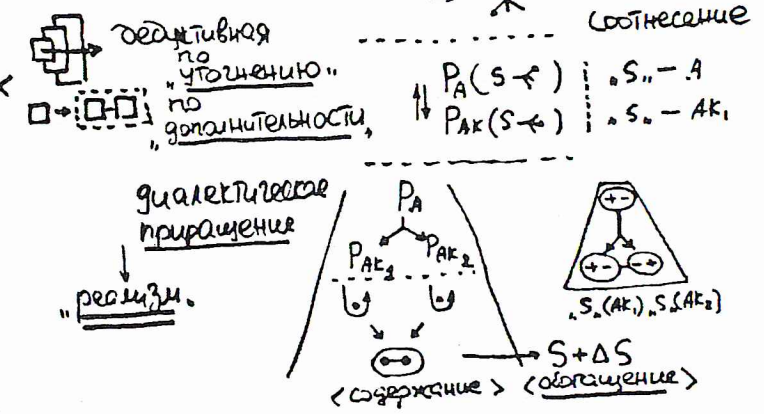 соотнесание
дедуктивная
по
"уточнению"
по
"дополнительности"
P_A(S⤙) "S" – A
P_AK(S⤙) "S" – AK₁
диалектическое
приращения
"реализм"
P_A
P_AK₁ P_AK₂
+ -
+ - - +
"S"(AK₁) "S"(AK₂)
S+ΔS
<содержание> <обогащение>